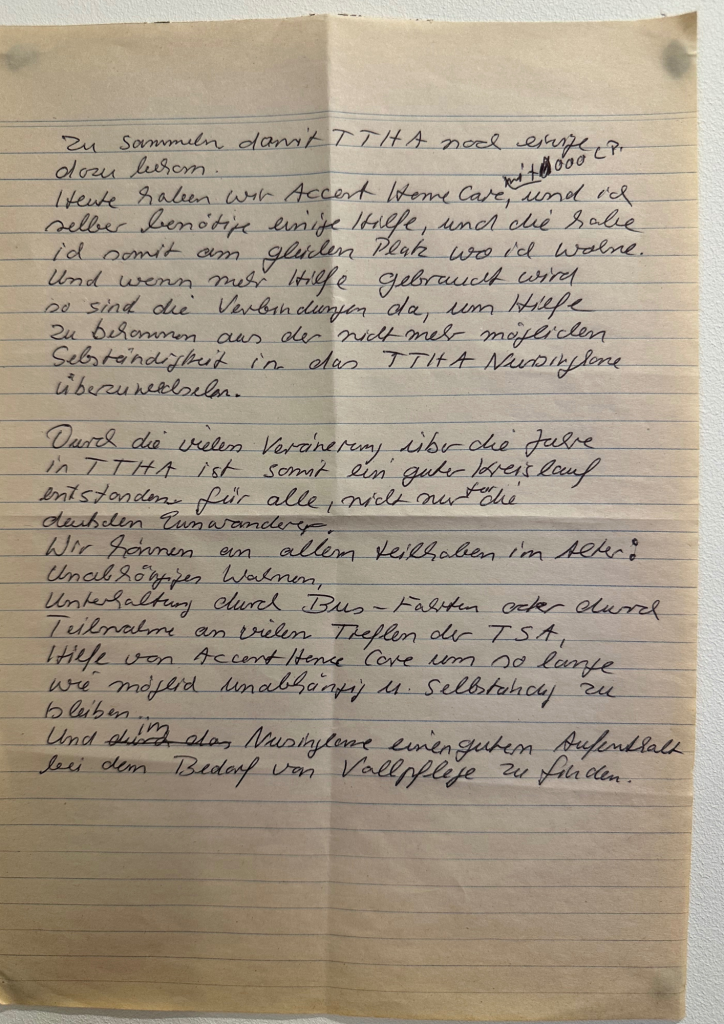 zu sammeln damit TTHA noch einige
dazu bekam.
Heute haben wir Accent Home Care, und ich
selber benötige einige Hilfe, und die habe
ich somit am gleichen Platz wo ich wohne.
Und wenn mehr Hilfe gebraucht wird
so sind die Verbindungen da, um Hilfe
zu bekommen aus der nicht mehr möglichen
Selbständigkeit in das TTHA Nursinghome
überzuwechseln.
Durch die vielen Veränerung über die Jahre
in TTHA ist somit ein guter Kreislauf
entstanden für alle, nicht nur für die
deutschen Einwanderer.
Wir können an allem teilhaben im Alter:
Unabhängiges Wohnen,
Unterhaltung durch Bus-Fahrten oder durch
Teilnahme an vielen Treffen der TSA,
Hilfe von Accent Home Care um so lange
wie möglich unabhängig u. selbständig zu
bleiben.
Und im Nursinghome einen gutem Aufenthalt
bei dem Bedarf von Vollpflege zu finden.